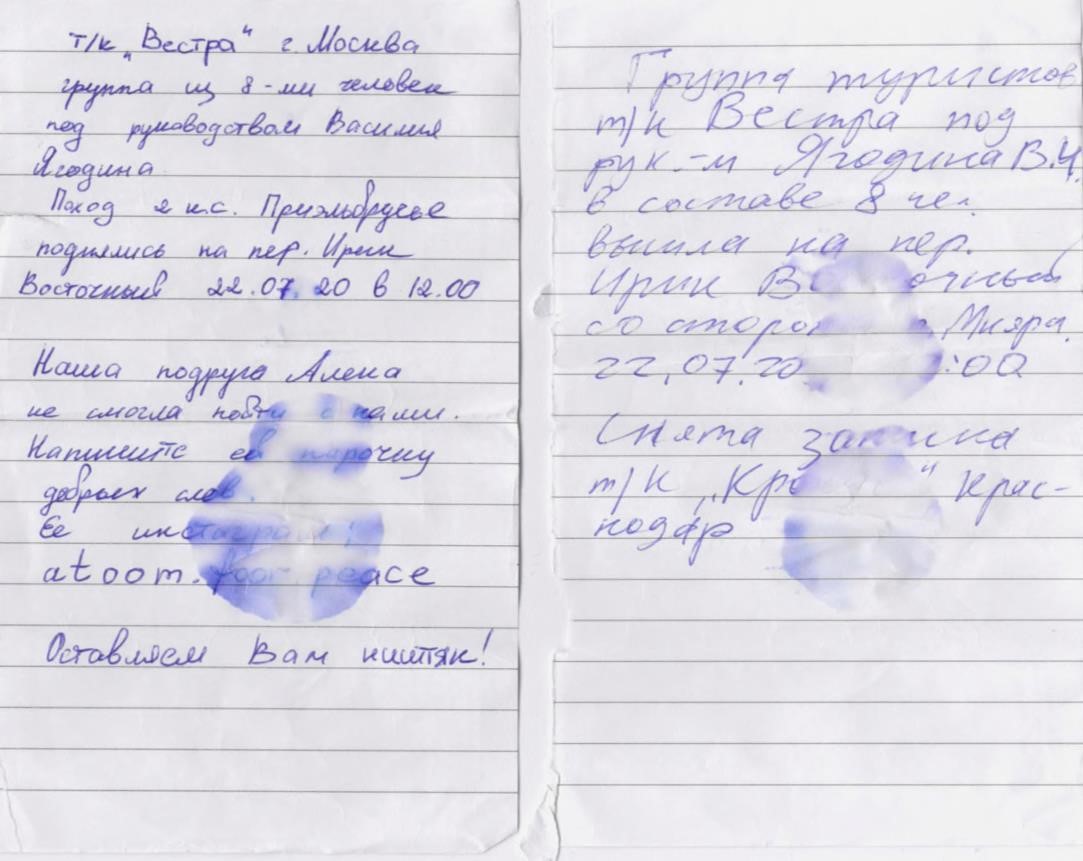 т/к „Вестра" г. Москва
группа из 8-ми человек
под руководством Василия
Ягодина
Поход 2 к.с. Приэльбрусье
поднялись на пер. Ирик
Восточный 22.07.20 в 12.00
Наша подруга Алена
не смогла пойти с нами.
Напишите ей парочку
добрых слов.
Ее инстаграмм:
atoom.foor.peace
Оставляем Вам ништяк!
Группа туристов
т/к Вестра под
рук-м Ягодина В.Ч.
в составе 8 чел.
вышла на пер.
Ирик Восточный
со стороны Мкяра.
22.07.20 :00
Снята записка
т/к „ " Крас-
нодар